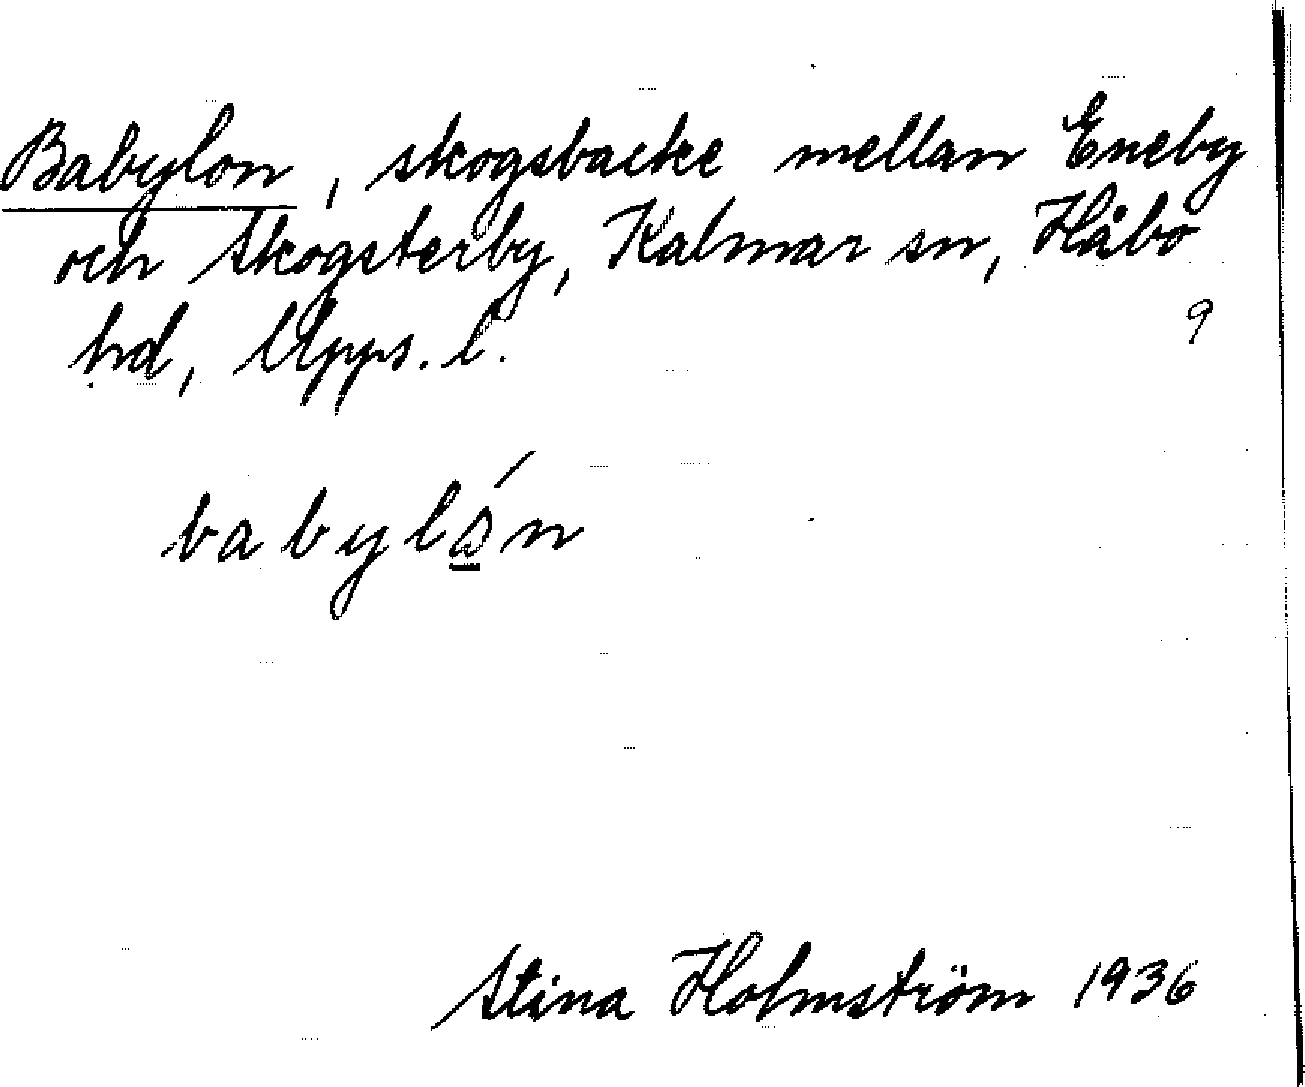 Babylon, skogsbacke mellan Eneby
och Skogsterby, Kalmar sn, Håbo
hd, Upps. l.
9
babylån
Stina Holmström 1936